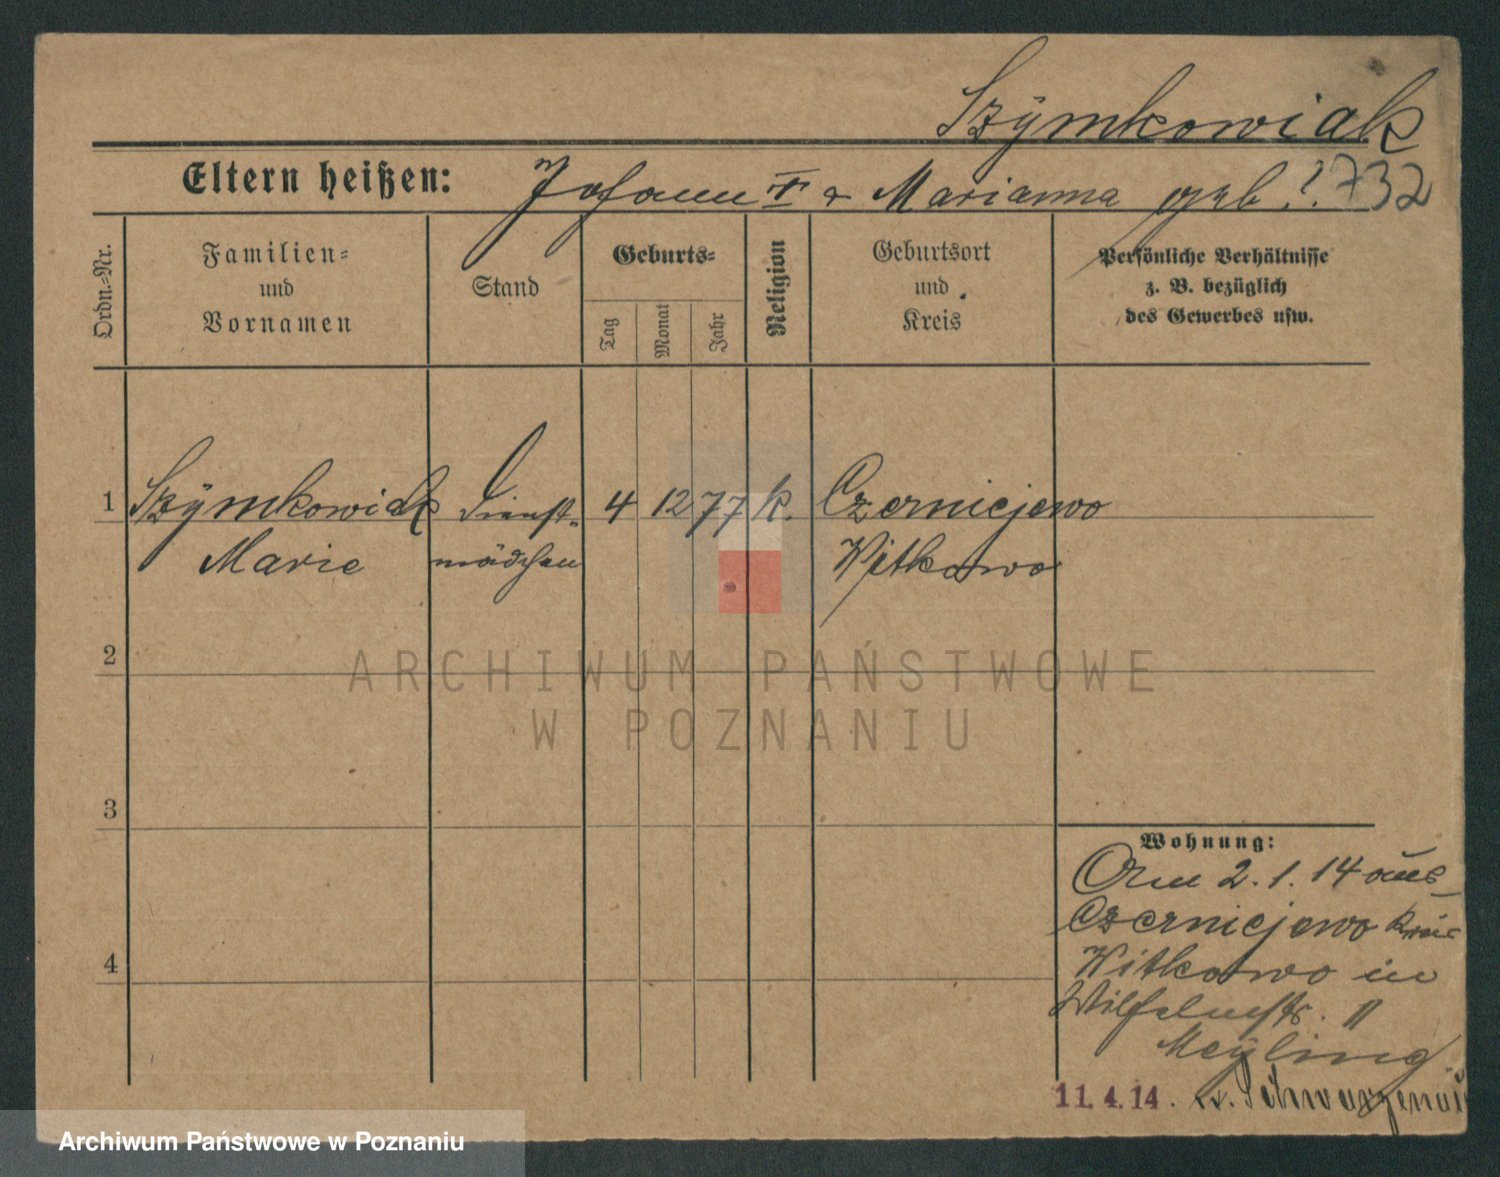 Szÿmkowiak
Eltern heißen: Johann † & Marianna geb. ? 732
Ordn.=Nr.
Familien=
und
Vornamen
Stand
Geburts=
Tag
Monat
Jahr
Religion
Geburtsort
und
Kreis
Persönliche Verhältnisse
z. B. bezüglich
des Gewerbes usw.
1 Szÿmkowiak Dienst- 4 12 77 k. Czerniejewo
Marie mädchen Witkowo
2
3
4
ARCHIWUM PAŃSTWOWE
W POZNANIU
Wohnung:
Am 2.1.14 aus
Czerniejewo Kreis
Witkowo in
Wilhelmstr. 11
Meÿling
11.4.14. n. Schwarzenau
Archiwum Państwowe w Poznaniu